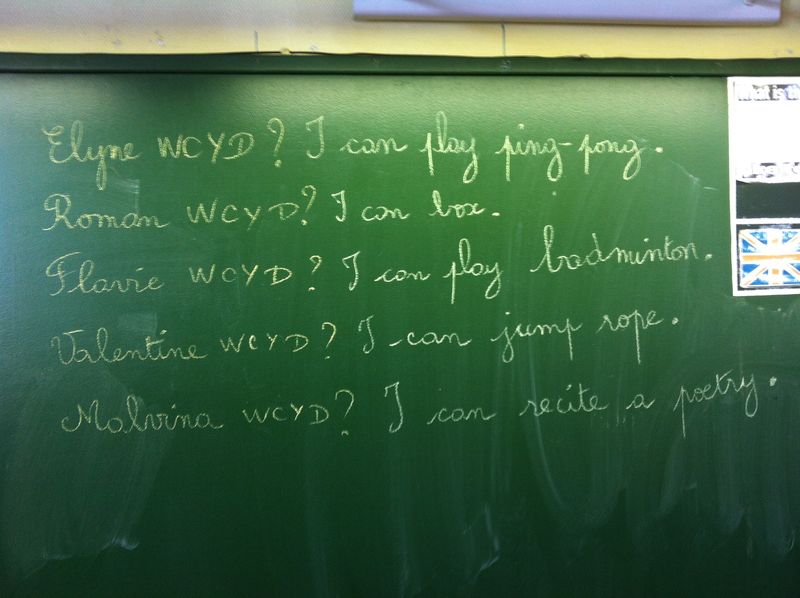 Elyne WCYD? I can play ping-pong.
Roman WCYD? I can box.
Flavie WCYD? I can play badminton.
Valentine WCYD? I can jump rope.
Malvina WCYD? I can recite a poetry.
What is th